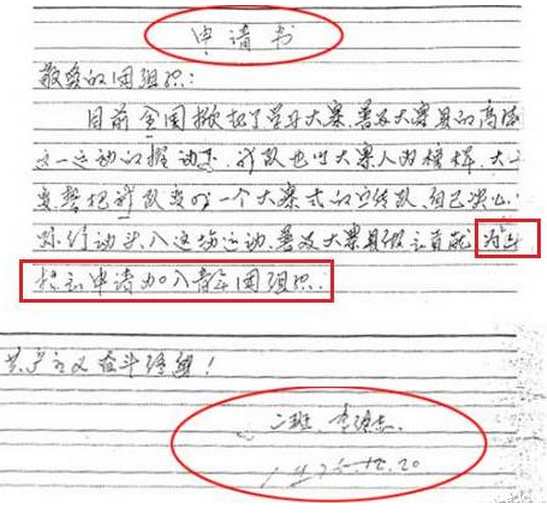 申请书
敬爱的团组织:
目前全国掀起了学习大寨、普及大寨县的高潮
这一运动的推动下,我队也以大寨人为榜样,大
变誓把我队变成一个大寨式的宣传队、自己决心
际行动投入这场运动、普及大寨县做立首献 为此
提出申请加入青年团组织.
共产主义奋斗终身!
二班.李
1975.12.20